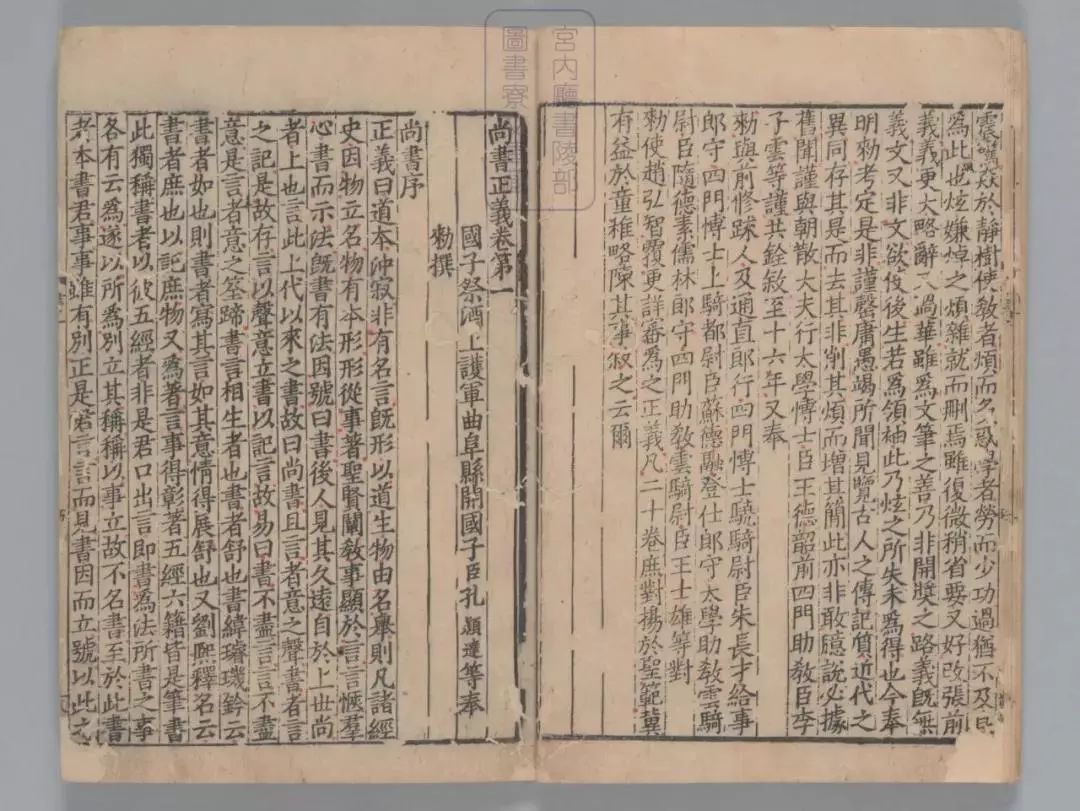 震驚焱於靜樹使教者煩而久惑學者勞而少功過猶不及
為此也炫嫌焯之煩雜就而刪焉雖復微稍省要又好改張前
義義更太略辭又過華雖為文筆之善乃非開獎之路義既無
義文又非文欲使後生若為領袖此乃炫之所失未為得也今奉
明勑考定是非謹罄庸愚竭所聞見覽古人之傳記質近代之
異同存其是而去其非削其煩而增其簡此亦非敢臆說必據
舊聞謹與朝散大夫行太學愽士臣王德韶前四門助教臣李
子雲等謹共銓敘至十六年又奉
勑與前修疏人及通直郎行四門愽士驍騎尉臣朱長才給事
郎守四門愽士上騎都尉臣蘇德融登仕郎守太學助教雲騎
尉臣隨德素儒林郎守四門助教雲騎尉臣王士雄等對
勑使趙弘智覆更詳審為之正義凡二十卷庶對揚於聖範冀
有益於童稚略陳其事敘之云爾
尚書正義卷第一
國子祭酒上護軍曲阜縣開國子臣孔穎達等奉
勑撰
尚書序
正義曰道本沖寂非有名言既形以道生物由名舉則凡諸經
史因物立名物有本形形從事著聖賢闡教事顯於言言愜羣
心書而示法既書有法因號曰書後人見其久遠自於上世尚
者上也言此上代以來之書故曰尚書且言者意之聲書者言
之記是故存言以聲意立書以記言故易曰書不盡言言不盡
意是言者意之筌蹄書言相生者也書者舒也書緯璿璣鈐云
書者如也則書者寫其言如其意情得展舒也又劉熙釋名云
書者庶也以記庶物又為著言事得彰著五經六籍皆是筆書
此獨稱書者以彼五經者非是君口出言即書為法所書之事
各有云為遂以所為別立其稱稱以事立故不名書至於此書
者本書君事事雖有別正是君言言而見書因而立號以此之
宮內廳書陵部
圖書寮